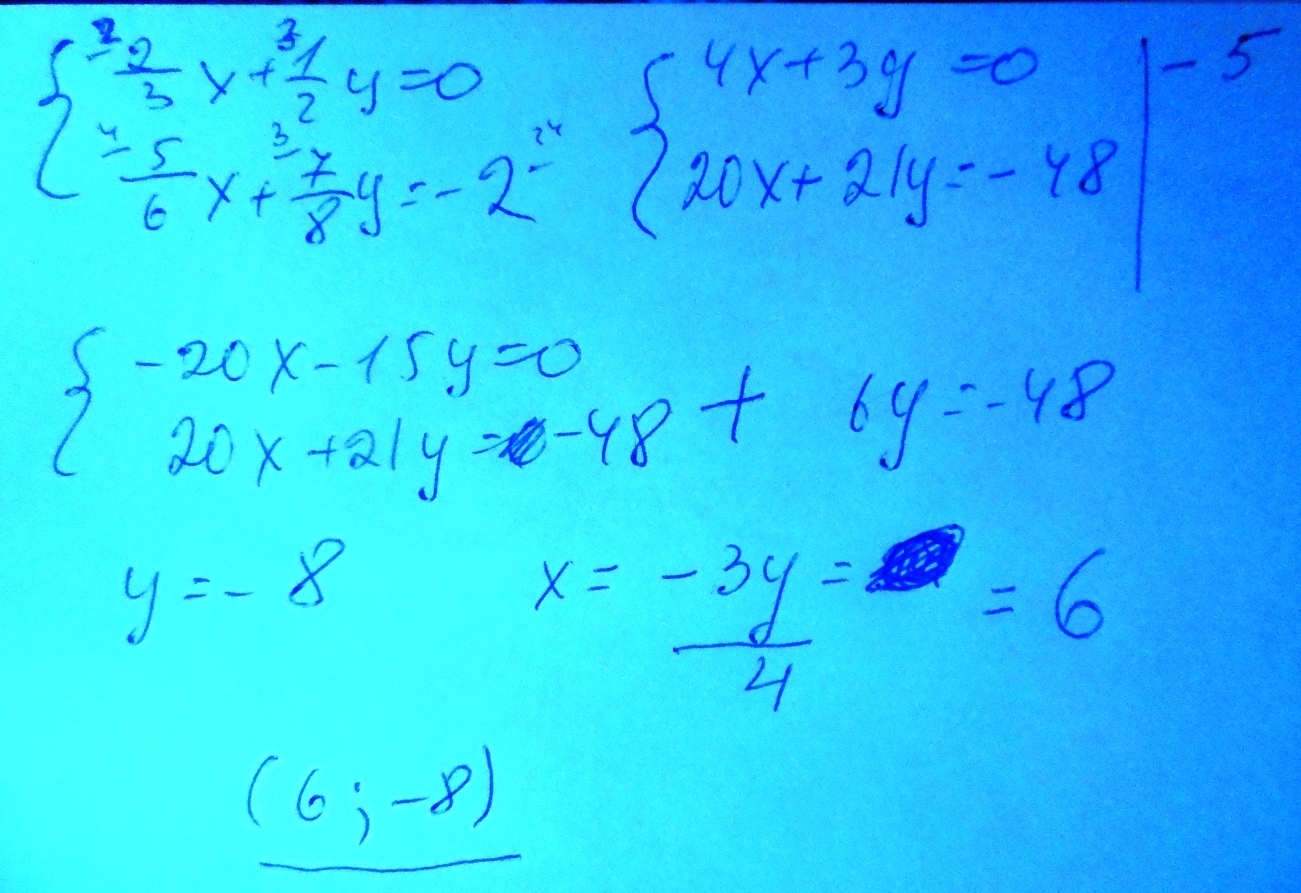 { ²⁻2/3 x + ³⁻1/2 y = 0
⁴⁻5/6 x + ³⁻7/8 y = -2 ²⁴⁻
{ 4x + 3y = 0 | -5
20x + 21y = -48
{ -20x - 15y = 0
20x + 21y = -48 + 6y = -48
y = -8 x = -3y/4 = = 6
(6; -8)